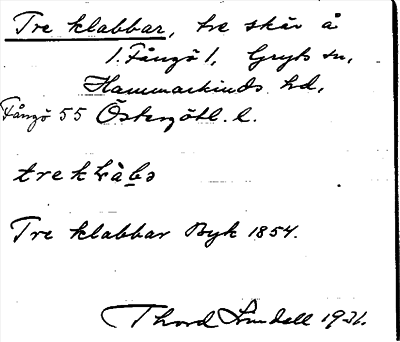 Tre klabbar, tre skär å
1. Fångö 1, Gryts sn,
Hammarkinds hd,
Fångö 55 Östergötl. l.
Tre klabbar Byk 1854.
Thord Lindell 1931.